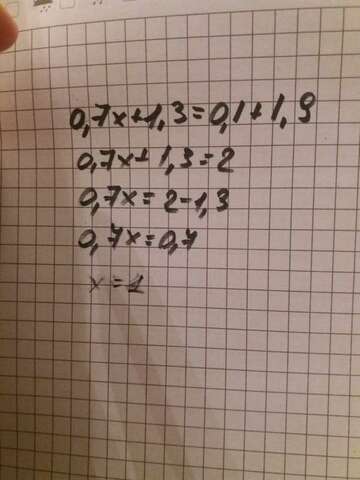 0,7x+1,3=0,1+1,9
0,7x+1,3=2
0,7x=2-1,3
0,7x=0,7
x=1